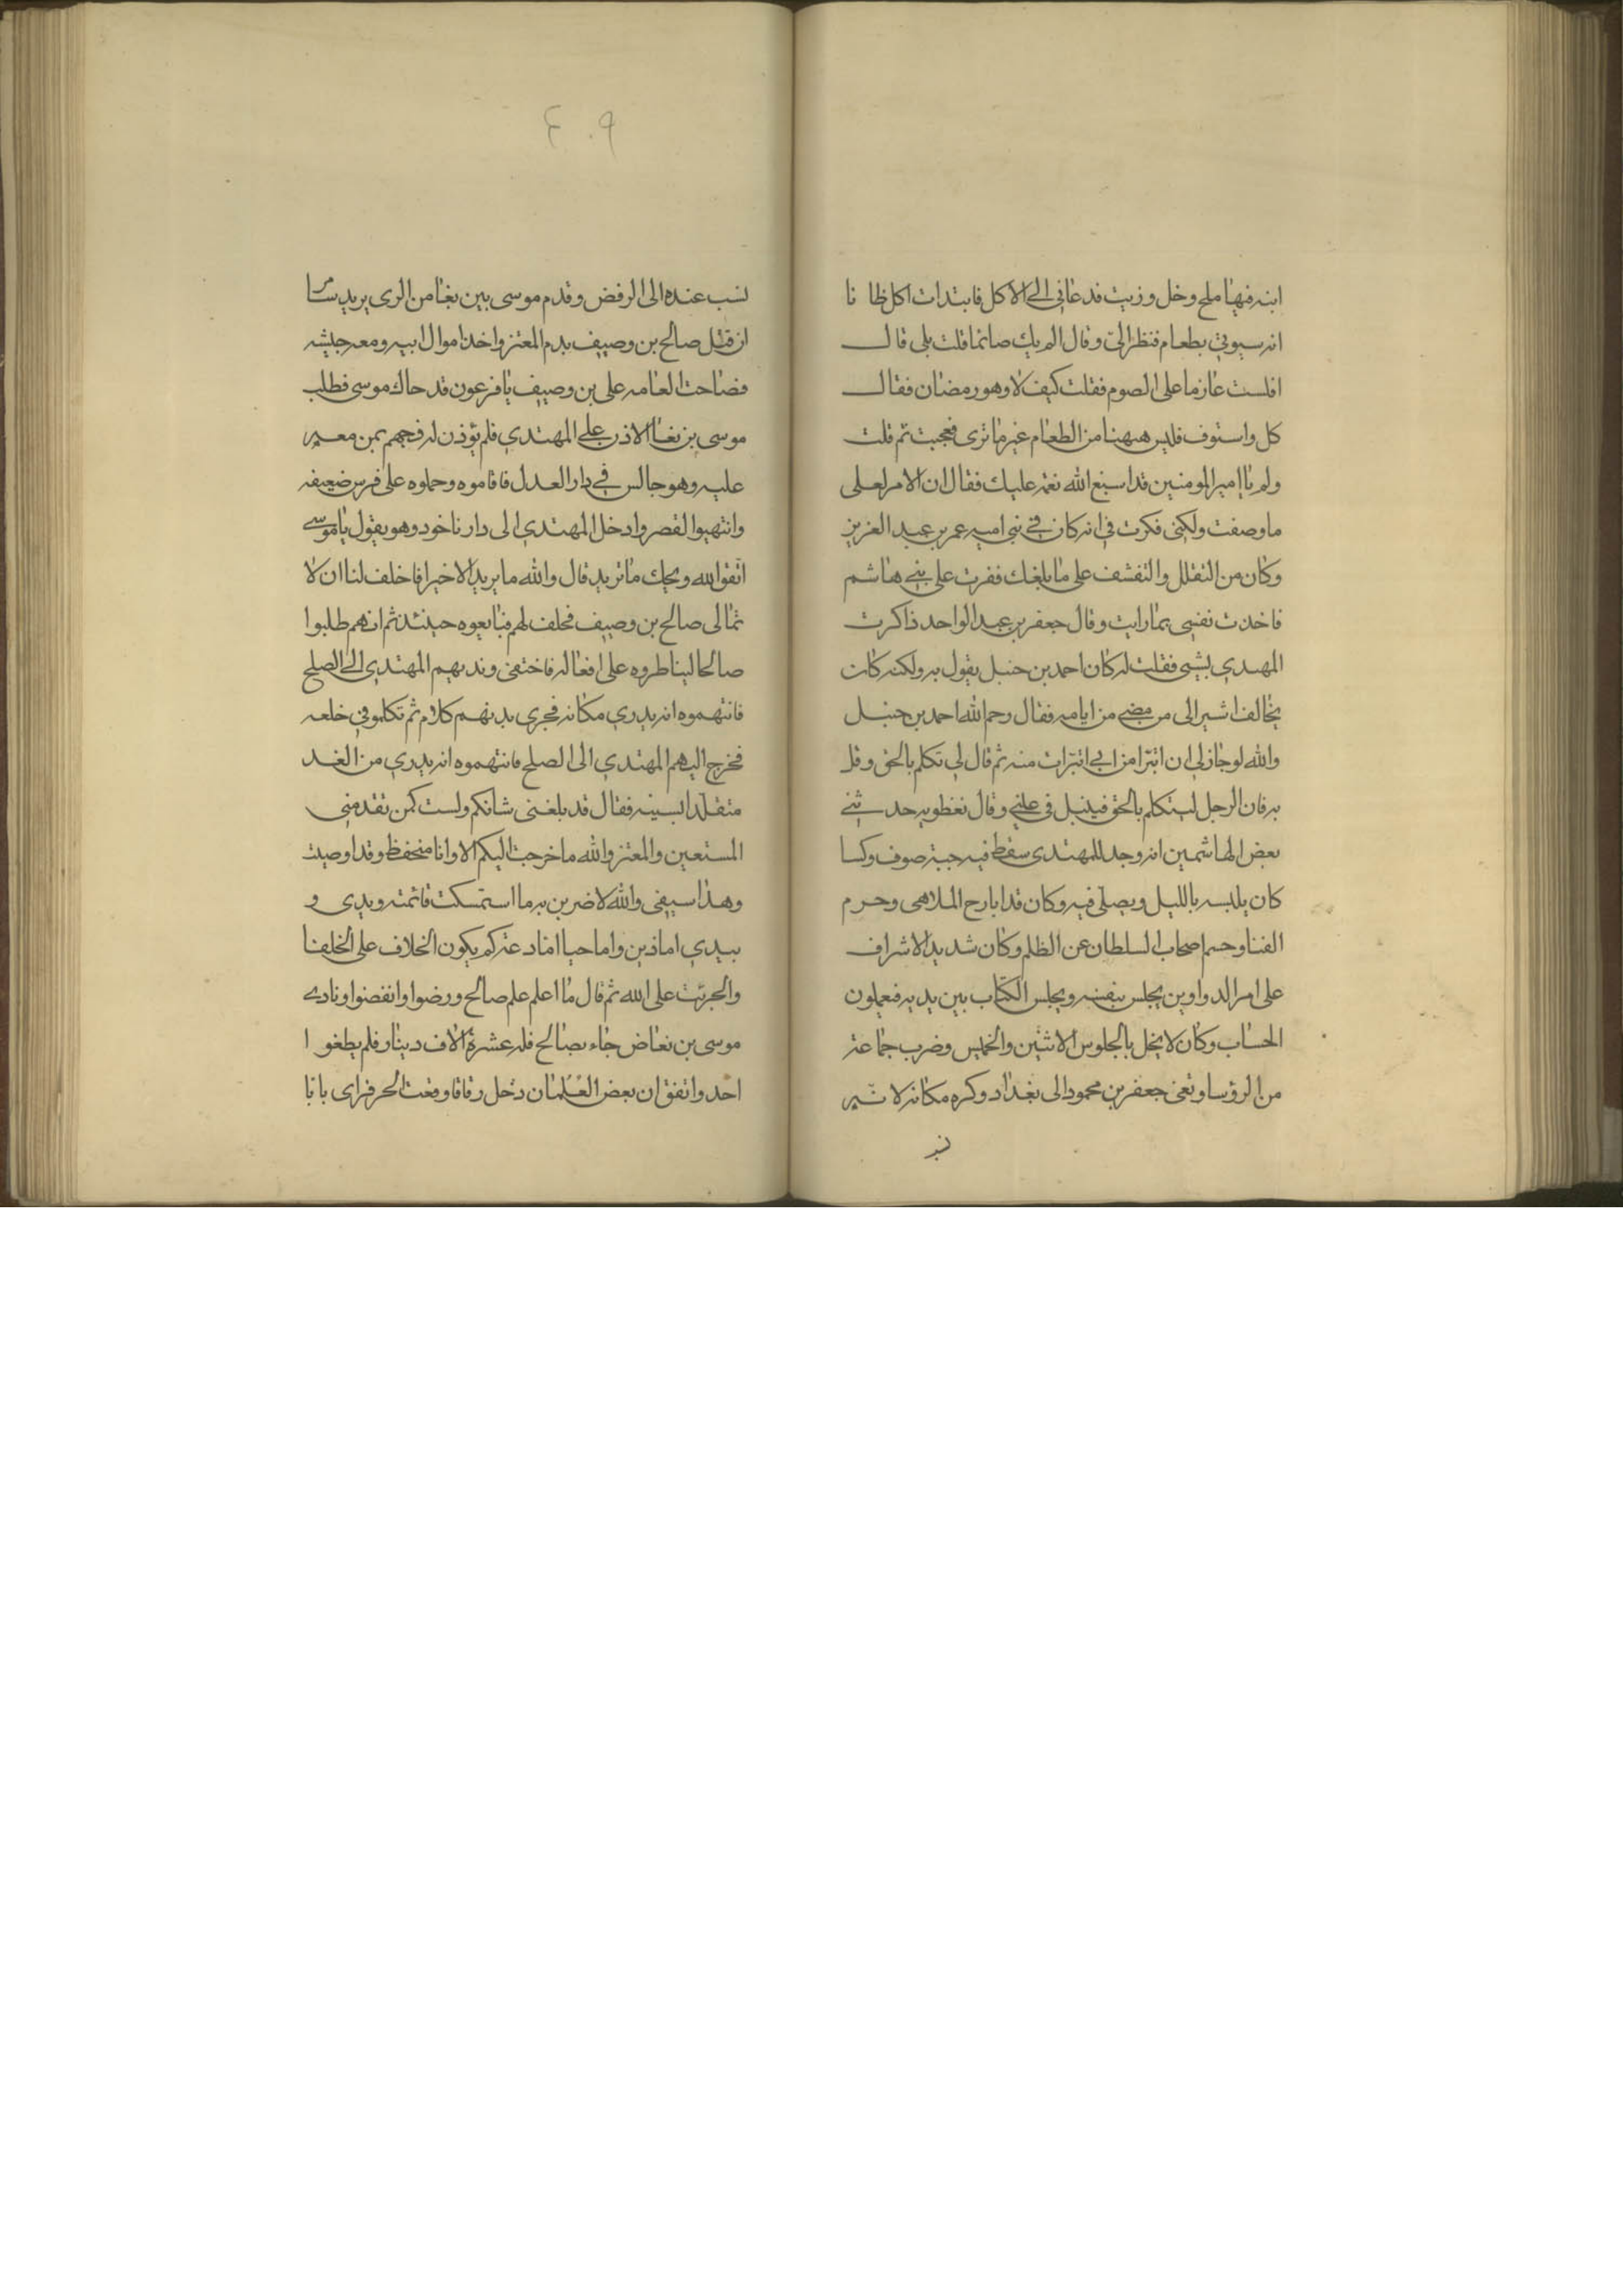 ابنه فيها ملح وخل وزيت فدعاني الى الاكل فابتدات اكل ظانا
انه سيوتي بطعام فنظر الىّ وقال الم يك صائما قلت بلى قال
افلست عازما على الصوم فقلت كيف لا وهو رمضان فقال
كل واستوف فليس ههنا من الطعام غير ما ترى فعجبت ثم قلت
ولم يا امير المومنين قد اسبغ الله نعمه عليك فقال ان الامر لعلى
ما وصفت ولكنى فكرت في انه كان في بني اميه عمر بن عبد العزيز
وكان من التقلل والتقشف على ما بلغك ففرت على بني هاشم
فاخذت نفسي بما رايت وقال جعفر بن عبد الواحد ذاكرت
المهدي بشيى فقلت له كان احمد بن حنبل يقول به ولكنه كان
يخالف اشير الى من مضى من ايامه فقال رحم الله احمد بن حنبل
والله لو جاز لي ان اتبرّا من ابي اتبرّات منه ثم قال لي تكلم بالحق وقل
به فان الرجل ليتكلم بالحق فينبل في عيني وقال نغطويه حدثني
بعض الهاشمين انه وجد للمهتدى سفط فيه جبة صوف وكسا
كان يلبسه بالليل ويصلّي فيه وكان قد ابارح الملاهى وحرم
الغنا وحسم اصحاب السلطان عن الظلم وكان شديد الاشراف
على امر الدواوين يجلس بنفسه ويجلس الكتّاب بين يديه فيعملون
الحساب وكان لا يخل بالجلوس الاثنين والخميس وضرب جماعة
من الرؤسا ونفى جعفر بن محمود الى بغداد وكره مكانه لانه
نسب
٤٠٩
نسب عنده الى الرفض وقدم موسى بين بغا من الرى يريد سامرا
ان قتل صالح بن وصيف بدم المعتز واخذ اموال ابيه ومعه جيشه
فصاحت العامه على بن وصيف يا فرعون قد جاك موسى فطلب
موسى بن بغا الاذن على المهتدي فلم يؤذن له فهجم بمن معه
عليه وهو جالس في دار العدل فاقاموه وحملوه على فرس ضعيفه
وانتهبوا القصر وادخل المهتدي الى دار ناخود وهو يقول يا موسى
اتقوالله ويحك ما تريد قال والله ما يريد الا خيرا فاحلف لنا ان لا
تمالى صالح بن وصيف فحلف لهم فبايعوه حينئذ ثم انهم طلبوا
صالحا ليناظروه على افعاله فاختفى وندبهم المهتدي الى الصلح
فاتهموه انه يدري مكانه فجرى بينهم كلام ثم تكلموا في خلعه
فخرج اليهم المهتدي الى الصلح فاتهموه انه يدري من الغد
متقلّدا بسيفه فقال قد بلغنى شانكم ولست كمن تقدمنى
المستعين والمعتز والله ما خرجت اليكم الا وانا متحفظ وقد اوصيت
وهذا سيفى والله لاضربن به ما استمسكت قائمته ويدى و
بيدي اما دين واما حيا اما دعه كم يكون الخلاف على الخلفا
والجرئت على الله ثم قال ما اعلم علم صالح ورضوا وانفضوا ونادى
موسى بن بغا من جاء بصالح فله عشرة الاف دينار فلم يظفروا
احد واتفق ان بعض الغلمان دخل زقاقا وقت الحر فراى بابا